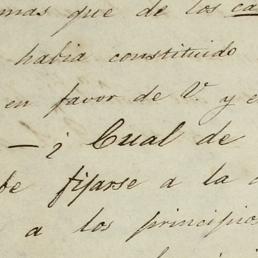 mas que de los ca
habia constituido
en favor de V. y e
— ¿ Cual de
be fijarse a la
a los principio